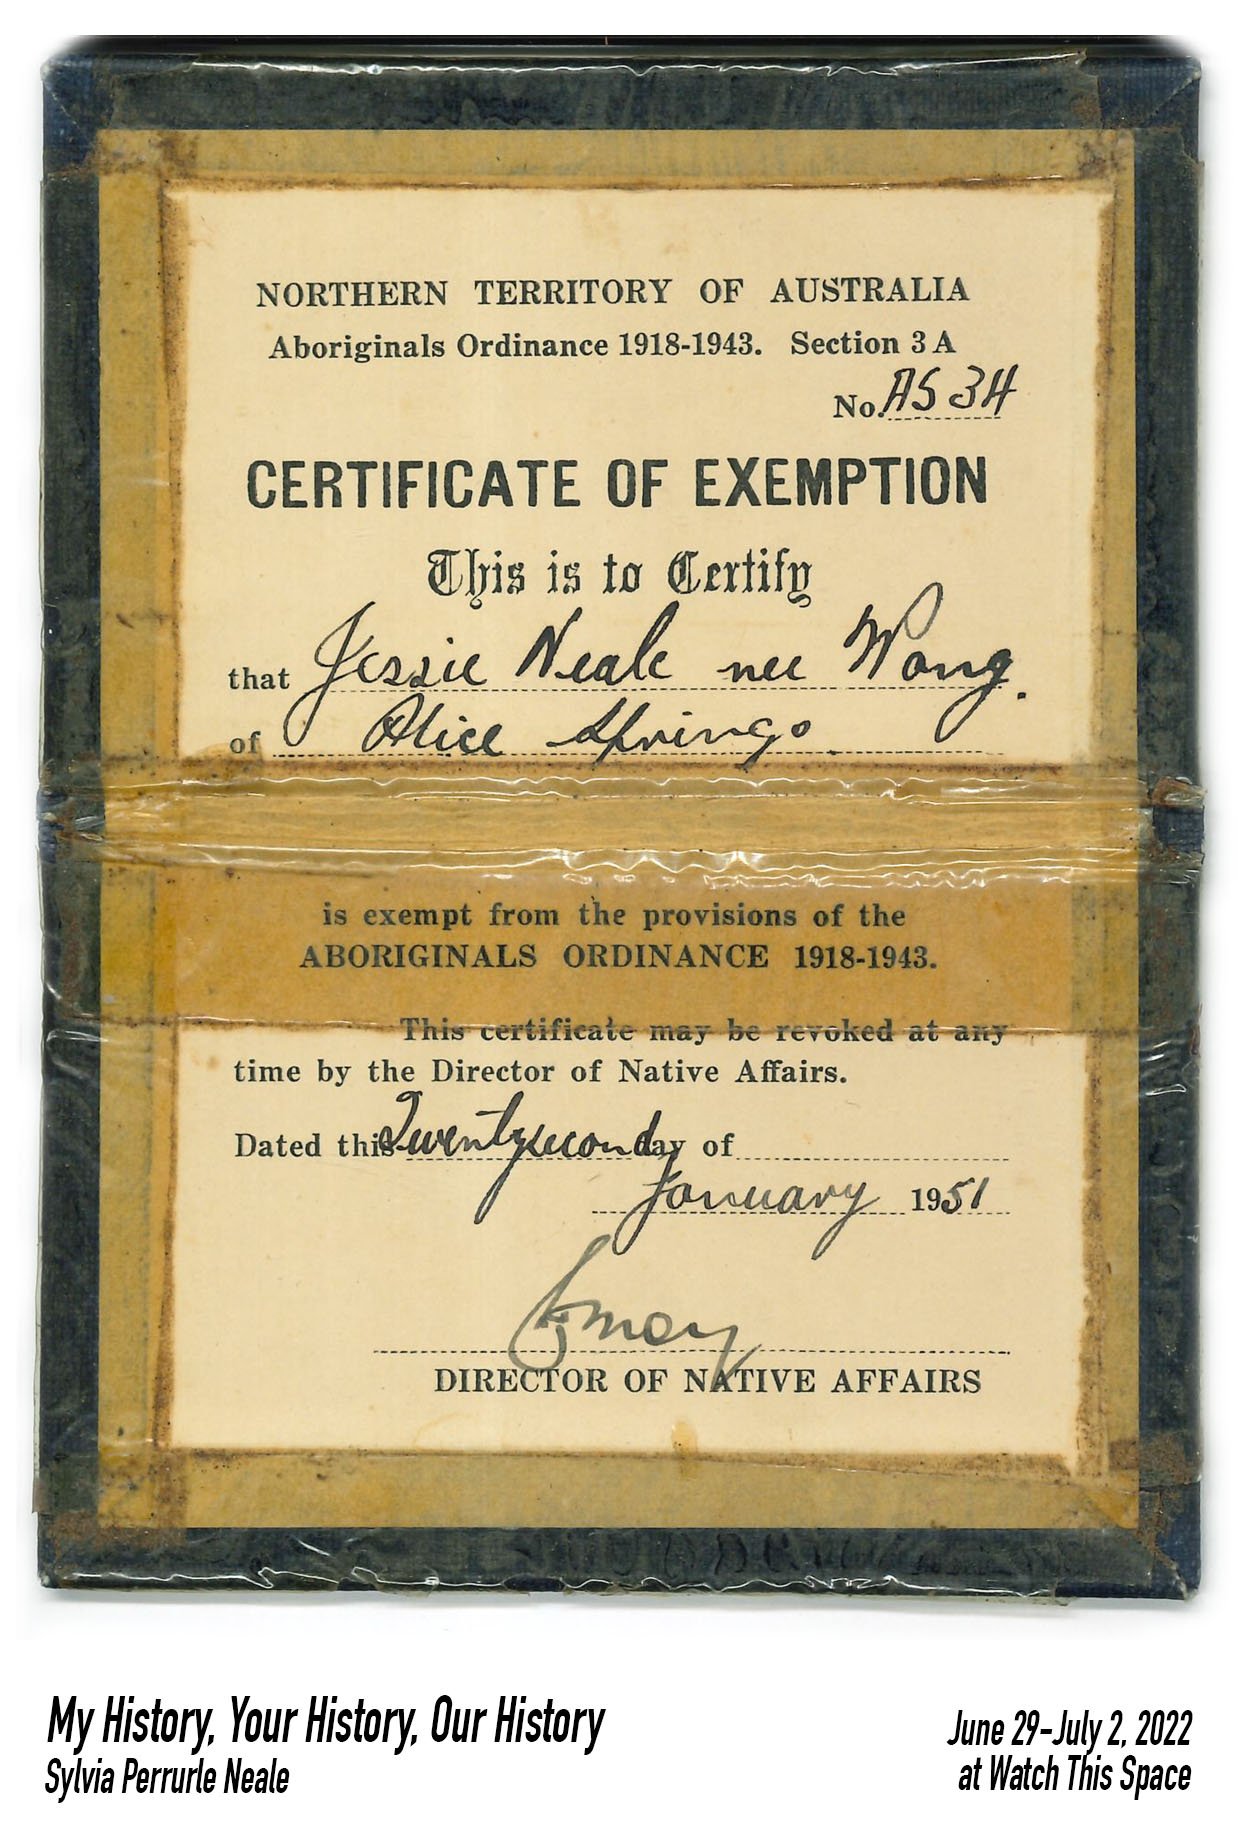 NORTHERN TERRITORY OF AUSTRALIA
Aboriginals Ordinance 1918-1943. Section 3 A
No. AS 34
CERTIFICATE OF EXEMPTION
This is to Certify
that Jessie Neale nee Wong.
of Alice Springs.
is exempt from the provisions of the
ABORIGINALS ORDINANCE 1918-1943.
This certificate may be revoked at any
time by the Director of Native Affairs.
Dated this Twentysecond day of
January 1951
DIRECTOR OF NATIVE AFFAIRS
My History, Your History, Our History
Sylvia Perrurle Neale
June 29–July 2, 2022
at Watch This Space